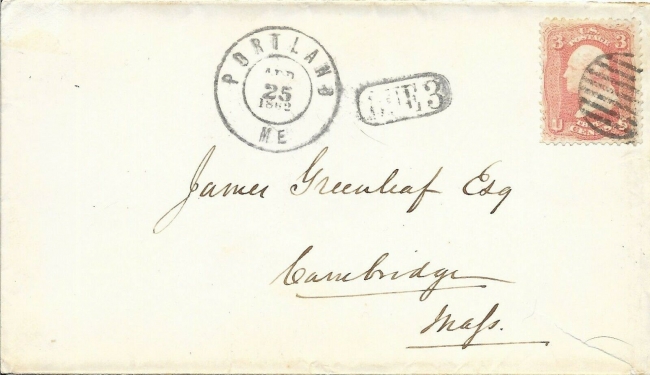 PORTLAND
APR
25
1862
ME
DUE 3
3 U.S. 3
POSTAGE
U S
CENTS
James Greenleaf Esq
Cambridge
Mass.